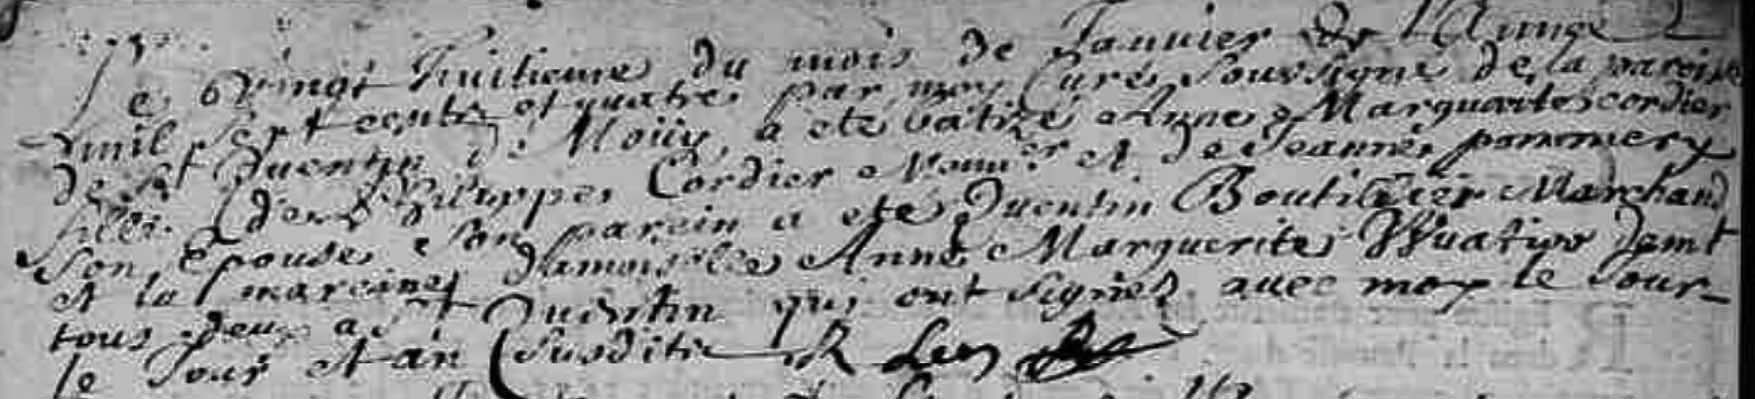 Le Vingt huitieme du mois de Janvier de l'Annee
mil sept cents et quatre par moy Curé soussigné de la paroisse
de St Quentin de Moüy a ete batizé Anne Marguerite cordier
fille de Philippe Cordier et de Jeanne pommery
son Epouse son parein a ete Quentin Boutillier Marchand
et la mareine damoiselle Anne Marguerite Wuatier demt
tous deux a St Quentin qui ont signés avec moy le
le Jour et an susdits